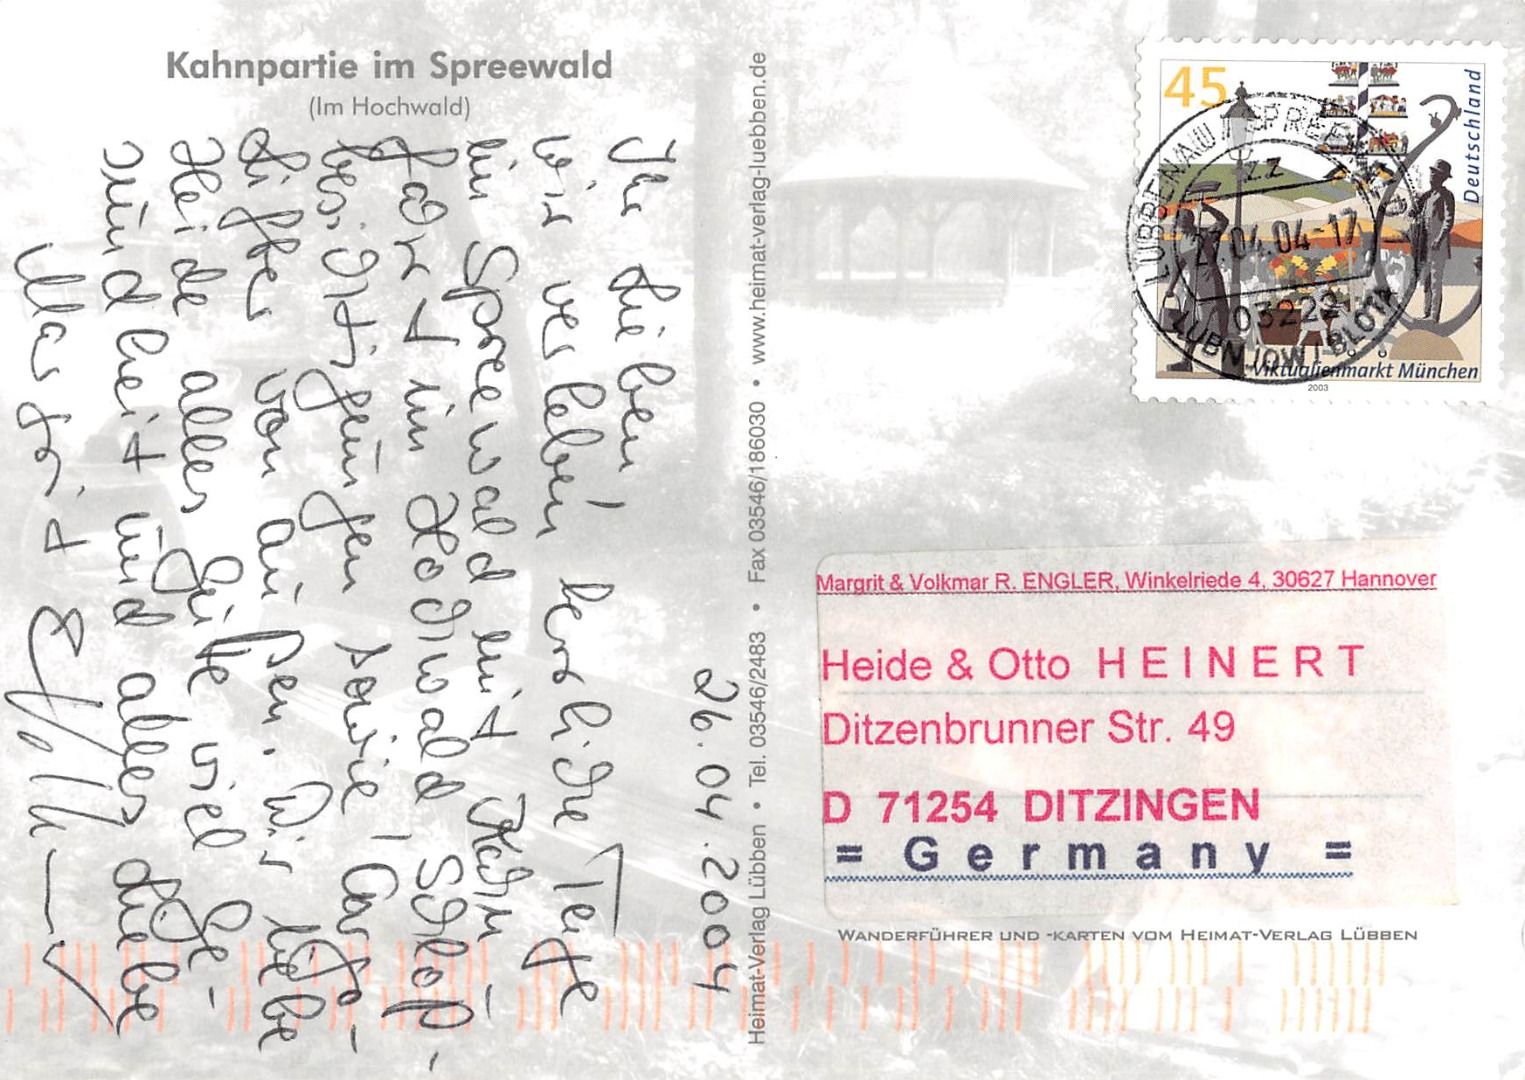 Kahnpartie im Spreewald
(Im Hochwald)
26.04.2004
Ihr Lieben!
Wir verleben herrliche Tage
im Spreewald mit Kahn-
fahrt im Hochwald, Schloß-
besichtigungen sowie
von außen. Wir
Heide alles Gute viel Ge-
sundheit und alles Liebe
Margrit &
Heimat-Verlag Lübben • Tel. 03546/2483 • Fax 03546/186030 • www.heimat-verlag-luebben.de
45
Deutschland
Viktualienmarkt München
2003
LÜBBENAU / SPREEWALD
zz
04.04-17
03222
LUBNJOW / BŁOTA
Margrit & Volkmar R. ENGLER, Winkelriede 4, 30627 Hannover
Heide & Otto H E I N E R T
Ditzenbrunner Str. 49
D 71254 DITZINGEN
= G e r m a n y =
WANDERFÜHRER UND -KARTEN VOM HEIMAT-VERLAG LÜBBEN